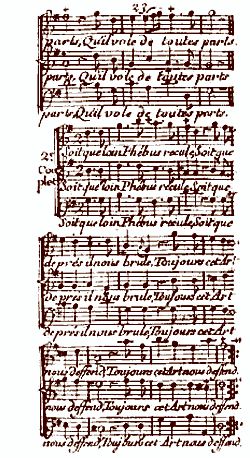 237
parts, Qu'il vole de toutes parts.
parts, Qu'il vole de toutes parts
parts, Qu'il vole de toutes parts.
2e. Couplet
Soit que loin Phébus recule, Soit que
Soit que loin Phébus recule, Soit que
Soit que loin Phébus recule, Soit que
de près il nous brule, Toujours cet Art
de près il nous brule, Toujours cet Art
de près il nous brule, Toujours cet Art
nous deffend, Toujours cet Art nous deffend.
nous deffend, Toujours cet Art nous deffend.
nous deffend, Toujours cet Art nous deffend.